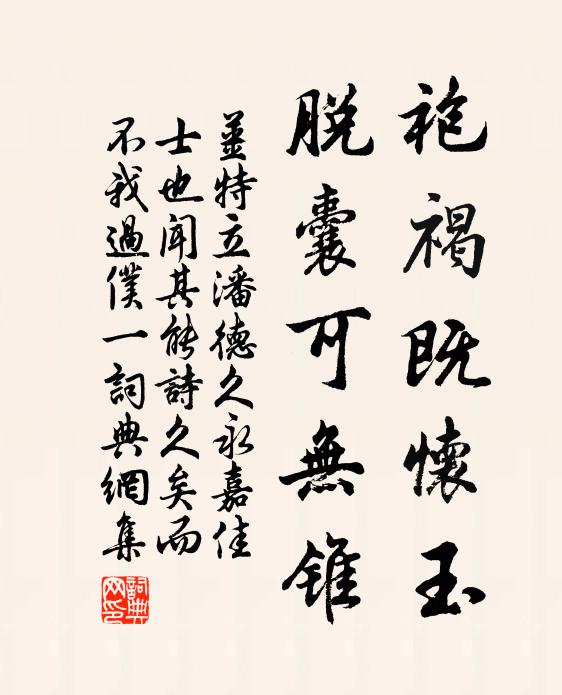 袍褐既懷玉
脫囊可無錐
姜特立潘德久永嘉佳
士也聞其能詩久矣而
不我過僕一詞典網集
詞典网印